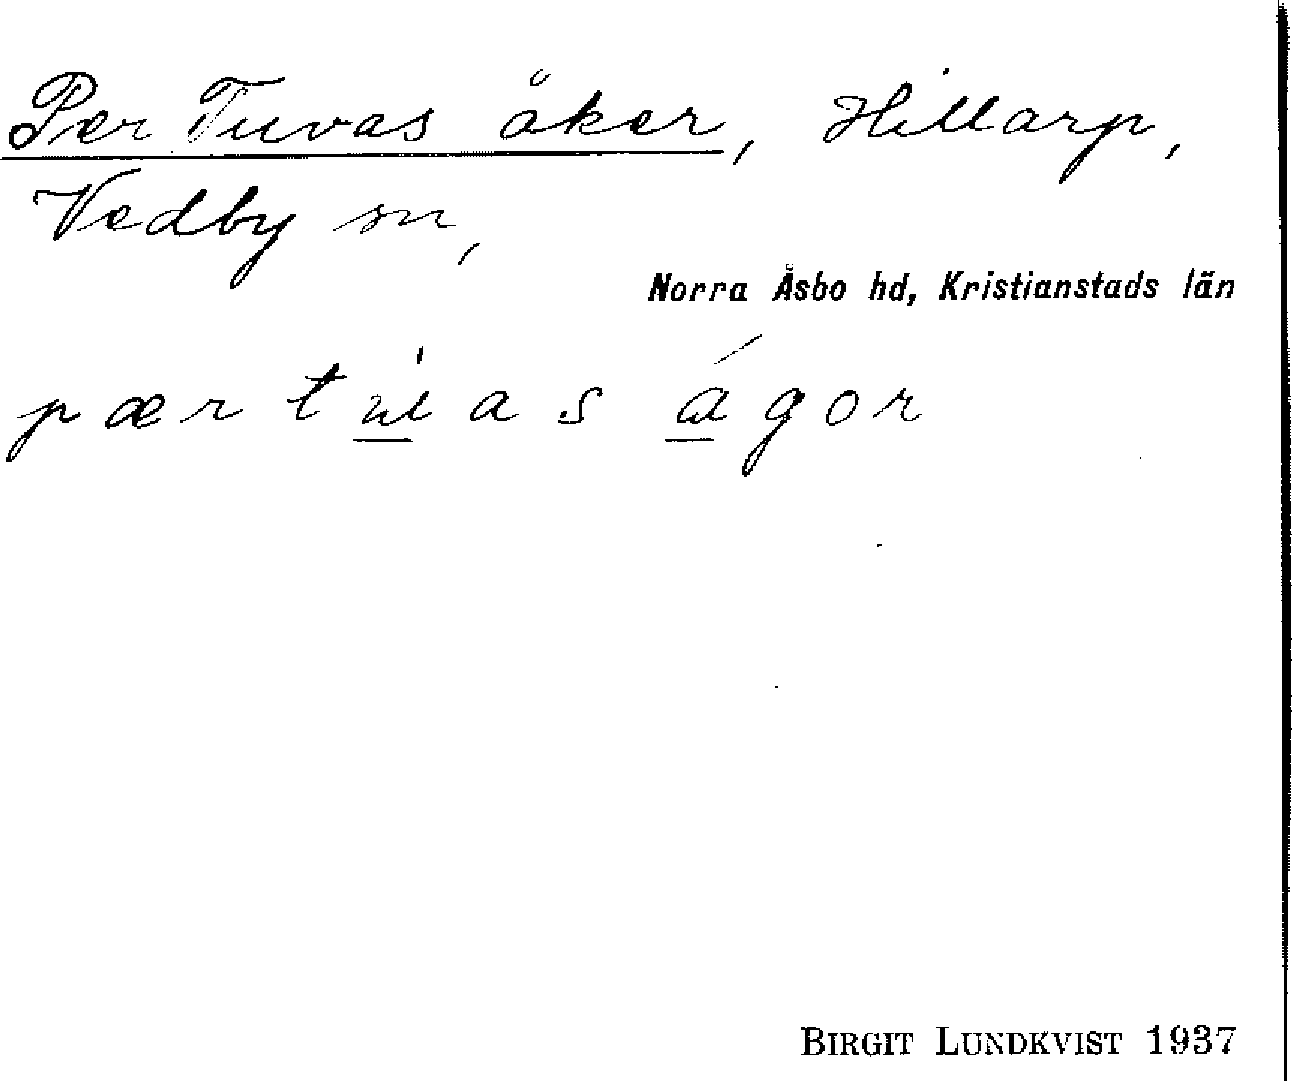 Per Tuvas åker, Hillarp,
Vedby sn,
Norra Åsbo hd, Kristianstads län
pær tuas ágor
BIRGIT LUNDKVIST 1937